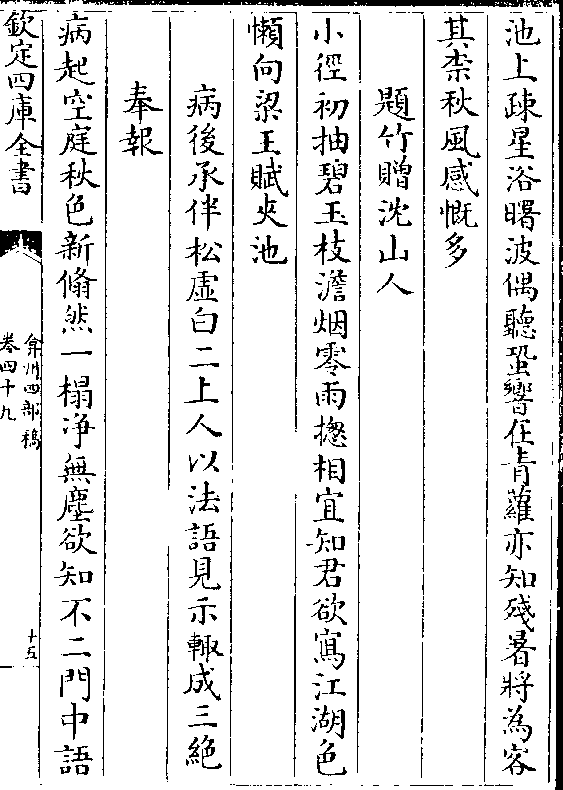 池上疎星浴曙波偶聽蛩響在青蘿亦知殘暑將為客
其柰秋風感慨多
題竹贈沈山人
小徑初抽碧玉枝澹烟零雨摠相宜知君欲寫江湖色
懶向梁王賦夾池
病後承伴松虛白二上人以法語見示輙成三絶
奉報
病起空庭秋色新翛然一榻净無塵欲知不二門中語
欽定四庫全書
弇州四部稿
卷四十九
十五